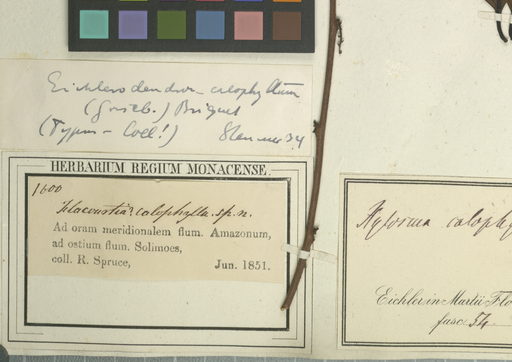 Eichlerodendron calophyllum
(Griseb.) Briquet
(Typus - Coll!) Sleumer 34
HERBARIUM REGIUM MONACENSE.
1600
Flacourtia? calophylla. sp. n.
Ad oram meridionalem flum. Amazonum,
ad ostium flum. Solimoes,
coll. R. Spruce, Jun. 1851.
Xylosma calophy
Eichler in Martii Flo
fasc. 54.